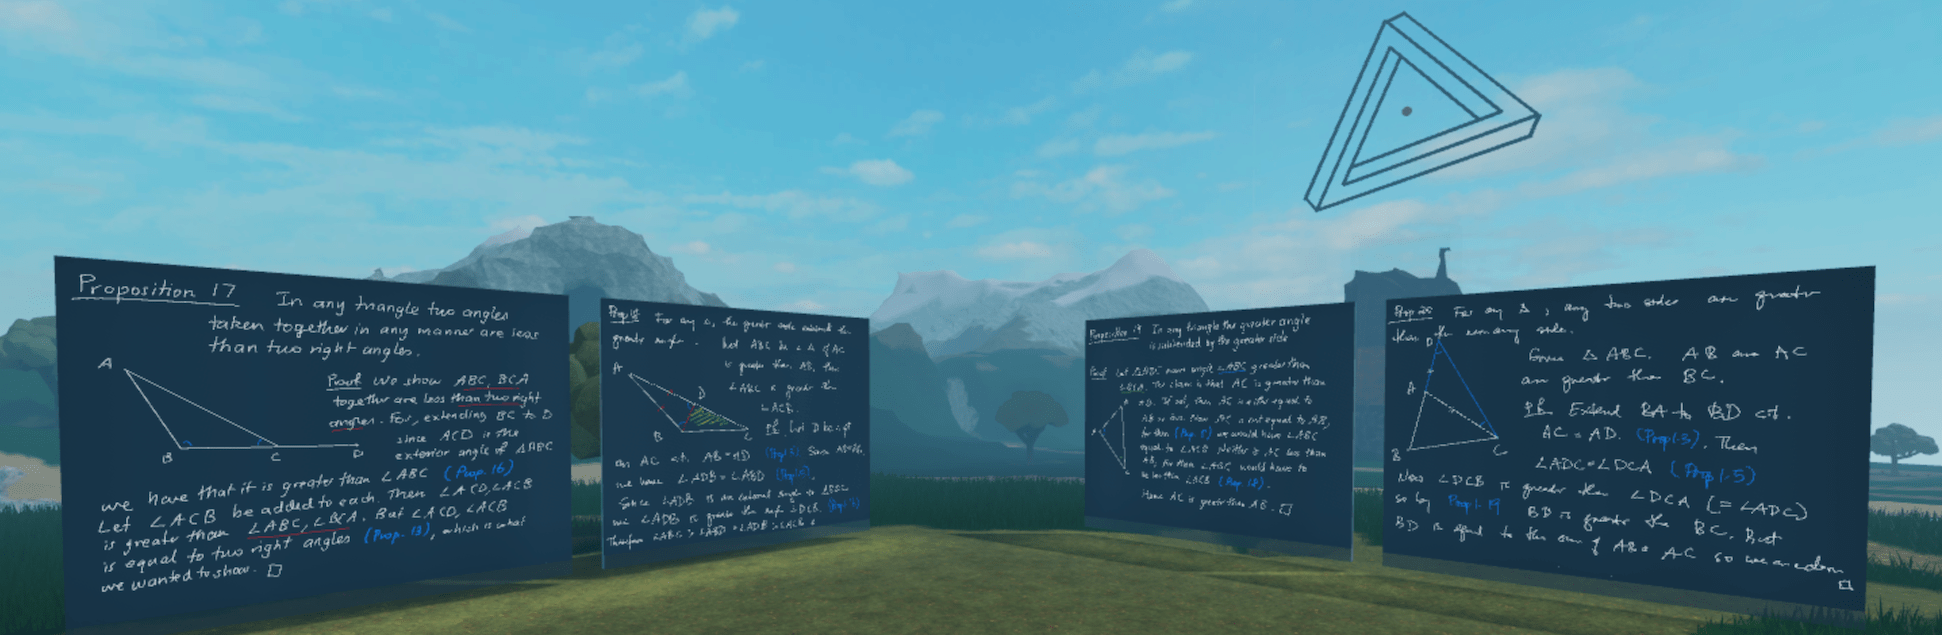 Proposition 17 In any triangle two angles
taken together in any manner are less
than two right angles.
A
B
C
D
Proof We show ABC, BCA
together are less than two right
angles. For, extending BC to D
since ACD is the
exterior angle of △ABC
we have that it is greater than ∠ABC (Prop. 16)
Let ∠ACB be added to each. Then ∠ACD, ∠ACB
is greater than ∠ABC, ∠BCA. But ∠ACD, ∠ACB
is equal to two right angles (Prop. 13), which is what
we wanted to show. □
Prop 18 For any △, the greater side
greater angle. Let ABC be a △ if AC
is greater than AB, then
∠ABC is greater than
∠ACB.
A
D
B
C
Pf. Let D be a pt
on AC st. AB = AD
we have ∠ADB = ∠ABD
Since ∠ADB is an external angle to
∠ADB is greater than
Therefore ∠ABC > ∠ABD = ∠ADB > ∠ACB
Proposition 19 In any triangle the greater angle
is subtended by the greater side
Proof Let △ABC have angle ∠ABC greater than
∠BCA. The claim is that AC is greater than
AB. If not, then AC is either equal to
AB or less. Now AC is not equal to AB,
for then (Prop. 5) we would have ∠ABC
equal to ∠ACB. Neither is AC less than
AB, for then ∠ABC would have to
be less than ∠ACB (Prop. 18).
Hence AC is greater than AB. □
Prop 20 For any △, any two sides are greater
than the remaining side.
D
A
B
C
Given △ABC. AB and AC
are greater than BC.
Pf. Extend BA to BD st.
AC = AD. (Prop 1-3). Then
∠ADC = ∠DCA (Prop 1-5)
Now ∠DCB is greater than ∠DCA (= ∠ADC)
so by Prop 1-19 BD is greater than BC. But
BD is equal to the sum of AB & AC so we are done
□